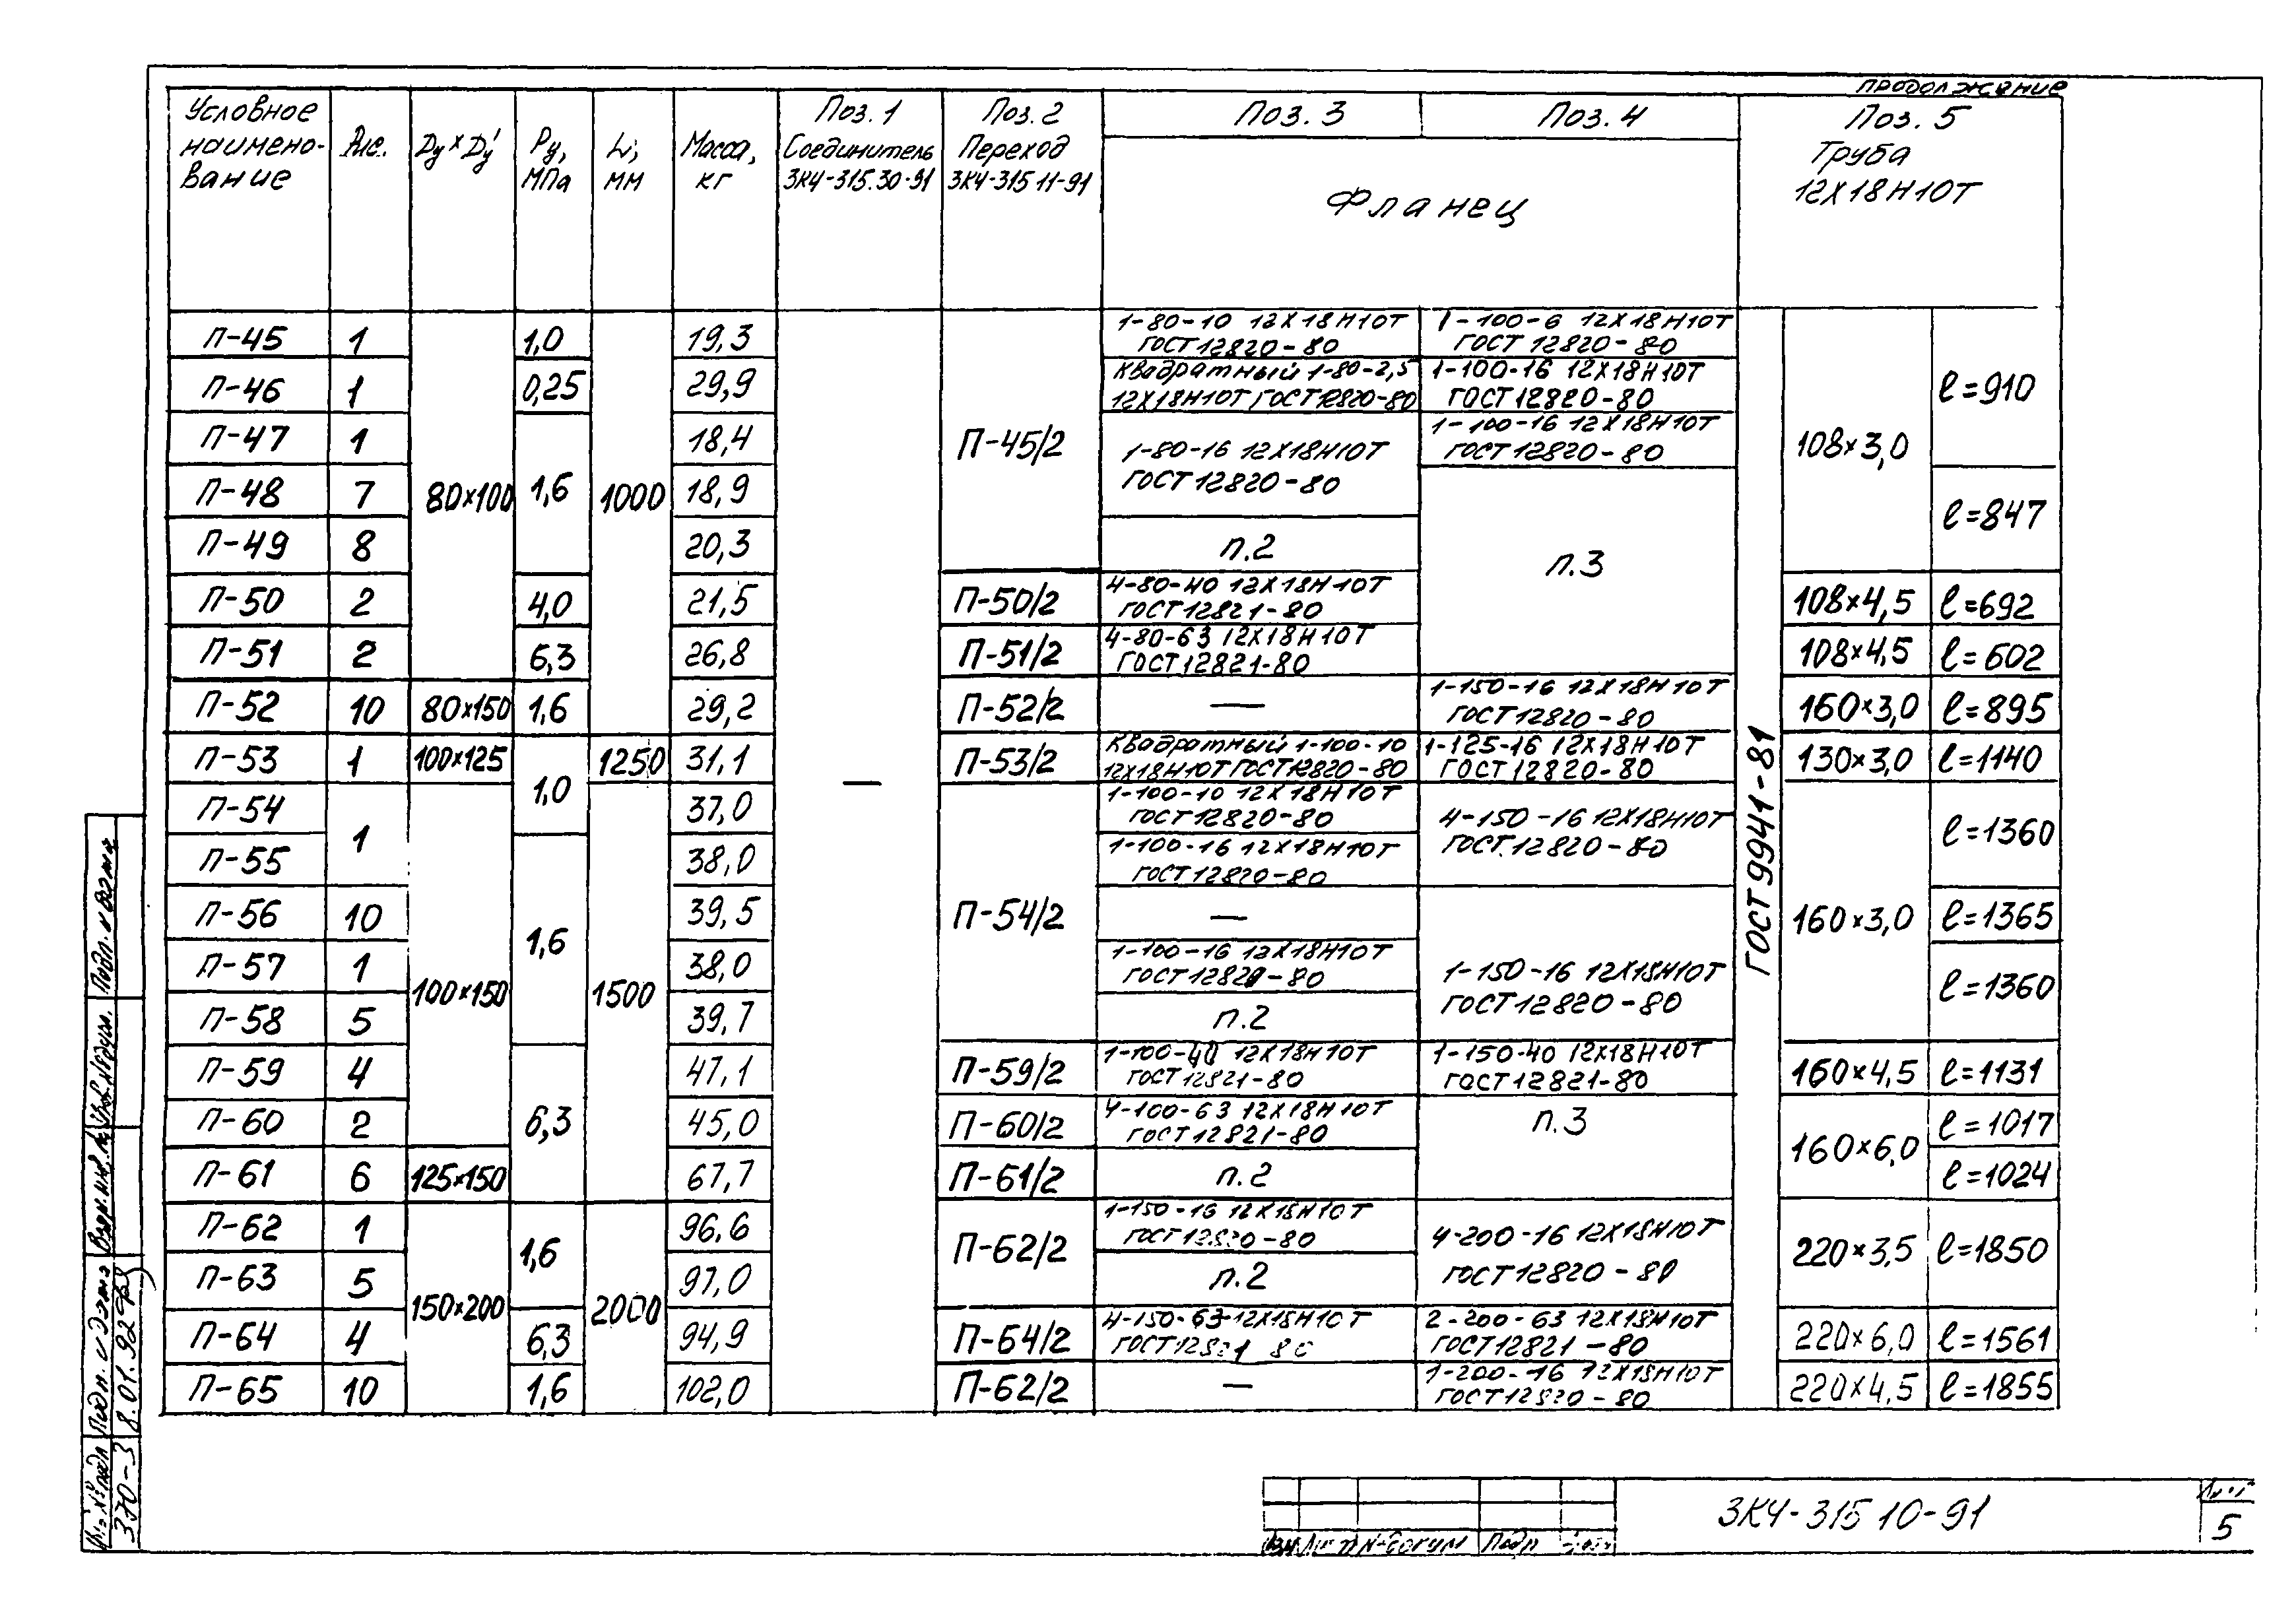 продолжение
Условное наимено-вание | Рис. | Dy×Dy' | Рy, МПа | L, мм | Масса, кг | Поз. 1 Соединитель ЗК4-315.30-91 | Поз. 2 Переход ЗК4-315 11-91 | Поз. 3 | Поз. 4 | Поз. 5 Труба 12Х18Н10Т
Фланец
П-45 | 1 | 80×100 | 1,0 | 1000 | 19,3 | — | П-45/2 | 1-80-10 12Х18Н10Т ГОСТ 12820-80 | 1-100-6 12Х18Н10Т ГОСТ 12820-80 | ГОСТ 9941-81 | 108×3,0 | ℓ=910
П-46 | 1 | 0,25 | 29,9 | Квадратный 1-80-2,5 12Х18Н10Т ГОСТ 12820-80 | 1-100-16 12Х18Н10Т ГОСТ 12820-80
П-47 | 1 | 1,6 | 18,4 | 1-80-16 12Х18Н10Т ГОСТ 12820-80 | 1-100-16 12Х18Н10Т ГОСТ 12820-80
П-48 | 7 | 18,9 | п.3 | ℓ=847
П-49 | 8 | 20,3 | п.2
П-50 | 2 | 4,0 | 21,5 | П-50/2 | 4-80-40 12Х18Н10Т ГОСТ 12821-80 | 108×4,5 | ℓ=692
П-51 | 2 | 6,3 | 26,8 | П-51/2 | 4-80-63 12Х18Н10Т ГОСТ 12821-80 | 108×4,5 | ℓ=602
П-52 | 10 | 80×150 | 1,6 | 29,2 | П-52/2 | — | 1-150-16 12Х18Н10Т ГОСТ 12820-80 | 160×3,0 | ℓ=895
П-53 | 1 | 100×125 | 1,0 | 1250 | 31,1 | П-53/2 | Квадратный 1-100-10 12Х18Н10Т ГОСТ 12820-80 | 1-125-16 12Х18Н10Т ГОСТ 12820-80 | 130×3,0 | ℓ=1140
П-54 | 1 | 100×150 | 1500 | 37,0 | П-54/2 | 1-100-10 12Х18Н10Т ГОСТ 12820-80 | 4-150-16 12Х18Н10Т ГОСТ 12820-80 | 160×3,0 | ℓ=1360
П-55 | 1,6 | 38,0 | 1-100-16 12Х18Н10Т ГОСТ 12820-80
П-56 | 10 | 39,5 | — | 1-150-16 12Х18Н10Т ГОСТ 12820-80 | ℓ=1365
П-57 | 1 | 38,0 | 1-100-16 12Х18Н10Т ГОСТ 12820-80 | ℓ=1360
П-58 | 5 | 39,7 | п.2
П-59 | 4 | 6,3 | 47,1 | П-59/2 | 1-100-40 12Х18Н10Т ГОСТ 12821-80 | 1-150-40 12Х18Н10Т ГОСТ 12821-80 | 160×4,5 | ℓ=1131
П-60 | 2 | 45,0 | П-60/2 | 4-100-63 12Х18Н10Т ГОСТ 12821-80 | п.3 | 160×6,0 | ℓ=1017
П-61 | 6 | 125×150 | 67,7 | П-61/2 | п.2 | ℓ=1024
П-62 | 1 | 150×200 | 1,6 | 2000 | 96,6 | П-62/2 | 1-150-16 12Х18Н10Т ГОСТ 12820-80 | 4-200-16 12Х18Н10Т ГОСТ 12820-80 | 220×3,5 | ℓ=1850
П-63 | 5 | 97,0 | п.2
П-64 | 4 | 6,3 | 94,9 | П-64/2 | 4-150-63-12Х18Н10Т ГОСТ 12821 80 | 2-200-63 12Х18Н10Т ГОСТ 12821-80 | 220×6,0 | ℓ=1561
П-65 | 10 | 1,6 | 102,0 | П-62/2 | — | 1-200-16 12Х18Н10Т ГОСТ 12820-80 | 220×4,5 | ℓ=1855
Подп. и дата
Подп. и дата
370-3
8.01.92
Подп
ЗК4-315 10-91
Лист
5